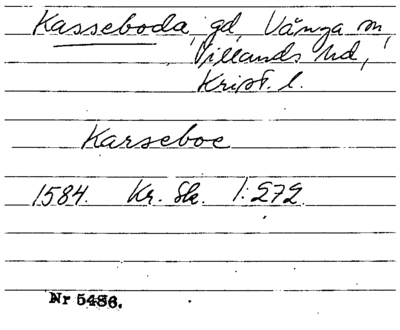 Kasseboda, gd, Vånga sn,
Villands hd,
Krist. l.
Karseboe
1584. Kr. Sk. 1:272.
Nr 5486.